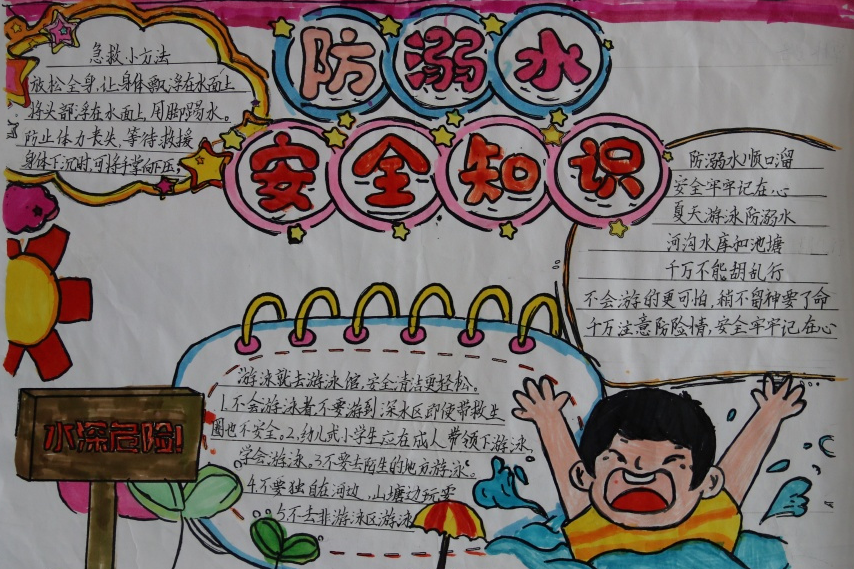 防溺水
安全知识
急救小方法
放松全身,让身体飘浮在水面上
将头部浮在水面上,用脚踢水。
防止体力丧失,等待救援
身体下沉时,可将手掌向下压;
防溺水顺口溜
安全牢牢记在心
夏天游泳防溺水
河沟水库和池塘
千万不能胡乱行
不会游的更可怕,稍不留神要了命
千万注意防险情,安全牢牢记在心
游泳就去游泳馆,安全清洁更轻松。
1.不会游泳者不要游到深水区即使带救生
圈也不安全。2.幼儿或小学生应在成人带领下游泳,
学会游泳。3.不要去陌生的地方游泳。
4.不要独自在河边,山塘边玩耍
5.不去非游泳区游泳
水深危险!